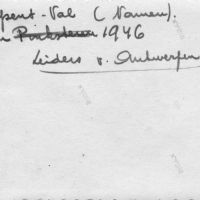 pent-Val (Namen).
Pinksteren 1946
Leiders v. Antwerpen